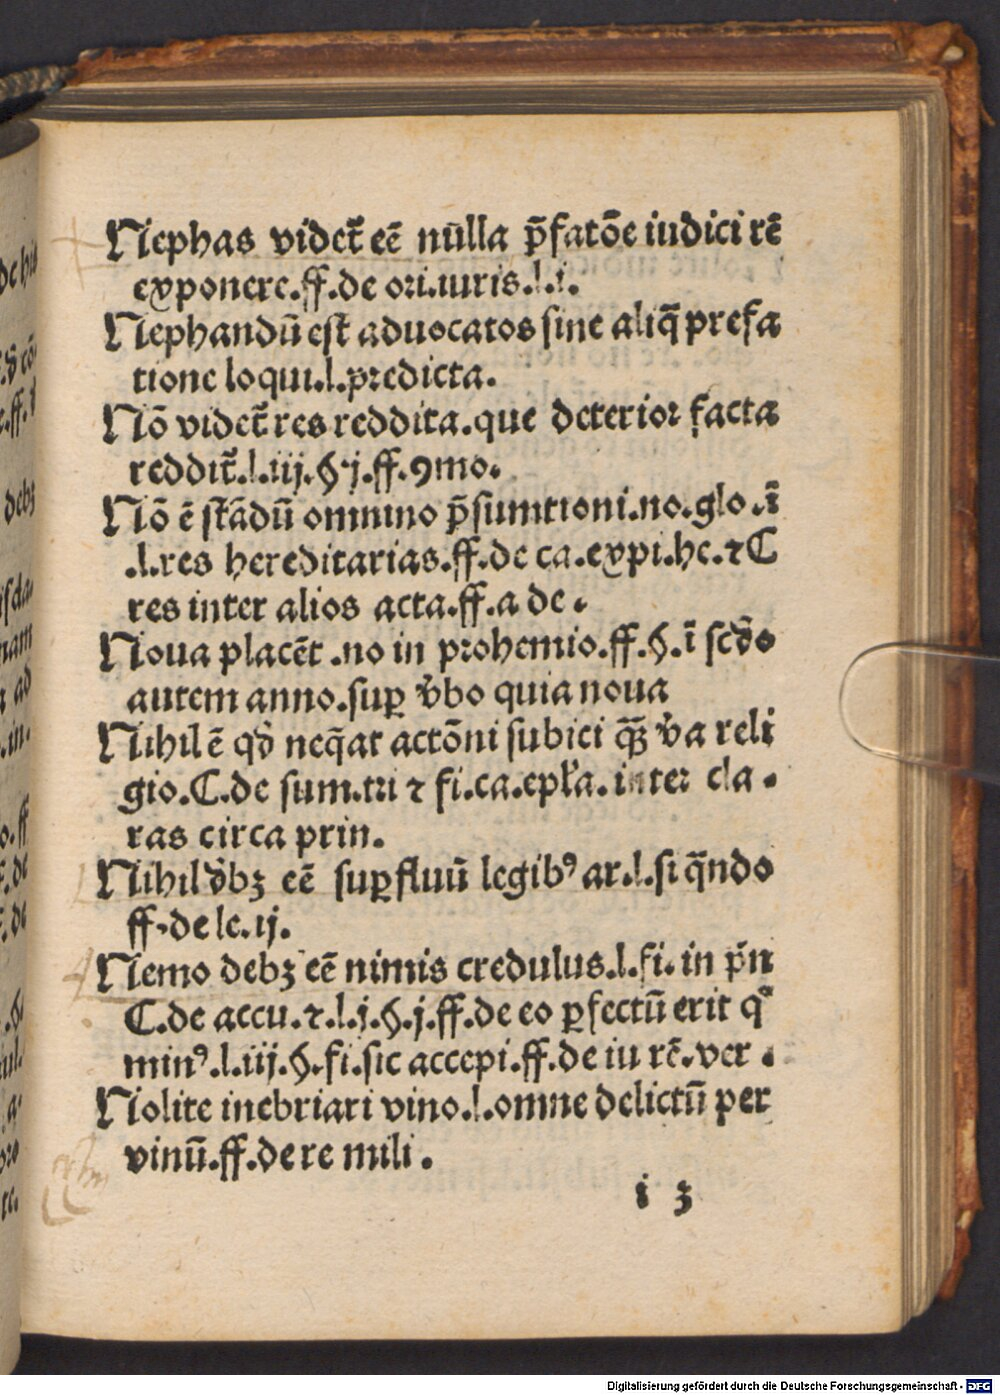 Nephas videt᷑ eē nūlla p̄fatōe iudici rē
exponere.ff.de ori.iuris.l.i.
Nephandū est aduocatos sine aliq̄ prefa
tione loqui.l.predicta.
Nō videt᷑ res reddita.que deterior facta
reddit᷑.l.iij.§.j.ff.ꝯmo.
Nō ē stādū omnino p̄sumtioni.no.glo.ī
.l.res hereditarias.ff.de ca.expi.he.⁊ C
res inter alios acta.ff.a de.
Noua placēt.no in prohemio.ff.§.ī scd̄o
autem anno.suꝑ v̄bo quia noua
Nihil ē qd̄ neq̄at actōni subici qꝫ̄ v̄a reli
gio.C.de sum.tri ⁊ fi.ca.epl̄a.inter cla.
ras circa prin.
Nihil d̄bꝫ eē suꝑfluū legibꝰ ar.l.si qn̄do
ff.de le.ij.
Nemo debꝫ eē nimis credulus.l.fi.in p̄n
C.de accu.⁊.l.j.§.j.ff.de eo ꝑfectū erit qͦ
minꝰ.l.iij.§.fi.sic accepi.ff.de iu rē.ver.
Nolite inebriari vino.l.omne delictū per
vinū.ff.de re mili.
i 3
Digitalisierung gefördert durch die Deutsche Forschungsgemeinschaft - DFG